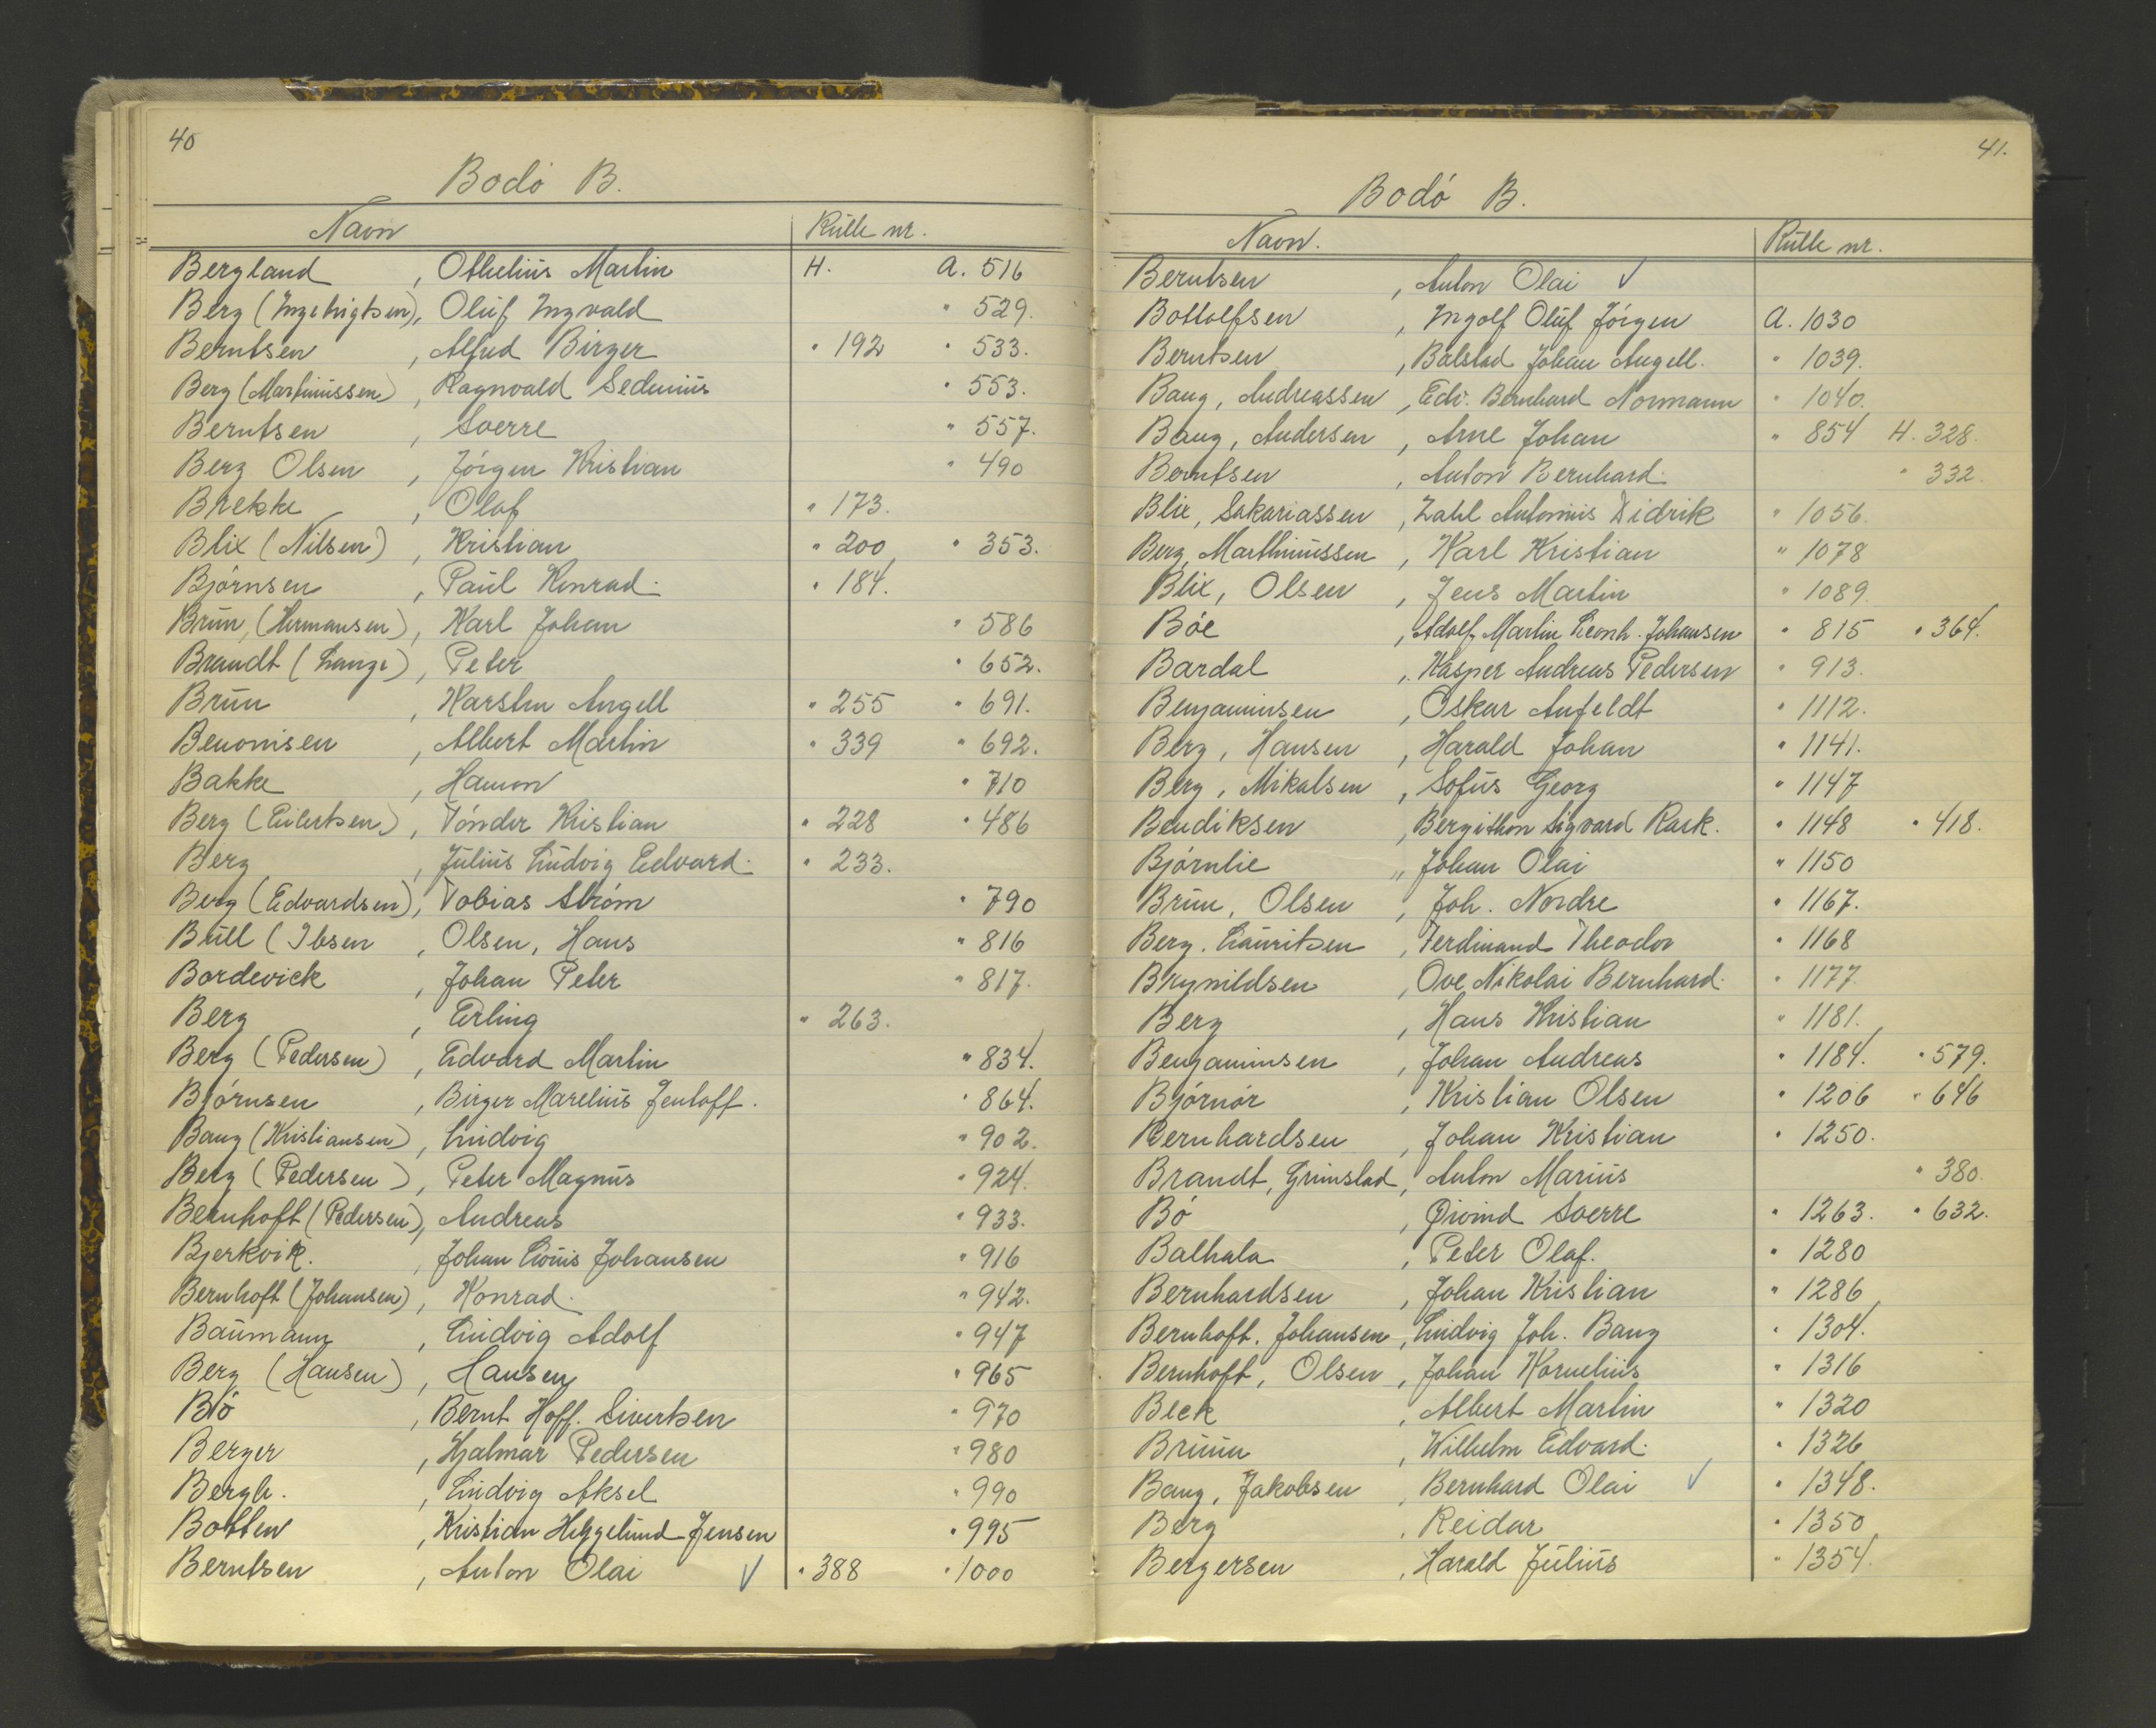 40
Bodó B.
Navn Rulle nr.
Bergland , Othelius Martin H. A. 516
Berg (Ingebrigtsen), Oluf Ingvald " 529.
Berntsen , Alfred Birger " 192 " 533.
Berg (Martinussen) , Ragnvald Sedenius " 553.
Berntsen , Sverre " 557.
Berg Olsen , Jórgen Kristian " 490
Brekke , Olaf " 173.
Blix (Nilsen) , Kristian " 200 " 353.
Bjórnsen , Paul Konrad. " 184.
Brun, (Hermansen) , Karl Johan " 586
Brandt (Lange) , Peter " 652.
Brun , Karsten Angell " 255 " 691.
Benonisen , Albert Martin " 339 " 692.
Bakke , Hamon " 710
Berg (Eilertsen) , Tónder Kristian " 228 " 486
Berg , Julius Ludvig Edvard. " 233.
Berg (Edvardsen), Tobias Stróm " 790
Bull (Ibsen , Olsen, Hans " 816
Bordevick , Johan Peter " 817.
Berg , Erling " 263.
Berg (Pedersen) , Edvard Martin " 834.
Bjórnsen , Birger Marelius Jentoft. " 864.
Bang (Kristiansen) , Ludvig " 902.
Berg (Pedersen) , Peter Magnus " 924.
Bernhoft (Pedersen), Andreas " 933.
Bjerkvik. , Johan Louis Johansen " 916
Bernhoft (Johansen) , Konrad. " 942.
Baumann , Ludvig Adolf " 947
Berg (Hansen) , Hansen " 965
Bó , Bernt Hoff. Sivertsen " 970
Berger , Hjalmar Pedersen " 980
Bergh. , Ludvig Aksel " 990
Botten , Kristian Heggelund Jensen " 995
Berntsen , Anton Olai ✓ " 388 " 1000
41.
Bodó B.
Navn. Rulle nr.
Berntsen , Anton Olai ✓
Bottolfsen , Ingolf Oluf Jórgen A. 1030
Berntsen , Balstad Johan Angell. " 1039.
Bang, Andreassen , Edv. Bernhard Normann " 1040.
Bang, Andersen , Arne Johan " 854 H. 328.
Berntsen , Anton Bernhard. " 332.
Blix, Sakariassen , Zahl Antonius Didrik " 1056.
Berg, Marthinussen , Karl Kristian " 1078
Blix, Olsen , Jens Martin " 1089.
Bóe , Adolf Martin Leonh. Johansen " 815 " 364.
Bardal , Kasper Andreas Pedersen " 913.
Benjaminsen , Oskar Anfeldt " 1112.
Berg, Hansen , Harald Johan " 1141.
Berg, Mikalsen , Sofus Georg " 1147
Bendiksen , Bergithon Sigvard Rask. " 1148 " 418.
Bjórnlie ,, Johan Olai " 1150
Brun, Olsen , Joh. Nordre " 1167.
Berg. Lauritsen , Ferdinand Theodor " 1168
Brynildsen , Ove Nikolai Bernhard. " 1177.
Berg , Hans Kristian " 1181.
Benjaminsen , Johan Andreas " 1184. " 579.
Bjórnór , Kristian Olsen " 1206 " 646
Bernhardsen , Johan Kristian " 1250.
Brandt, Grimstad , Anton Marius " 380.
Bó , Øivind Sverre " 1263. " 632.
Balhala , Peter Olaf. " 1280
Bernhardsen , Johan Kristian " 1286
Bernhoft. Johansen , Ludvig Joh. Bang " 1304.
Bernhoft, Olsen , Johan Kornelius " 1316
Beck , Albert Martin " 1320
Bruun , Wilhelm Edvard. " 1326
Bang, Jakobsen , Bernhard Olai ✓ " 1348.
Berg , Reidar " 1350
Bergersen , Harald Julius " 1354.